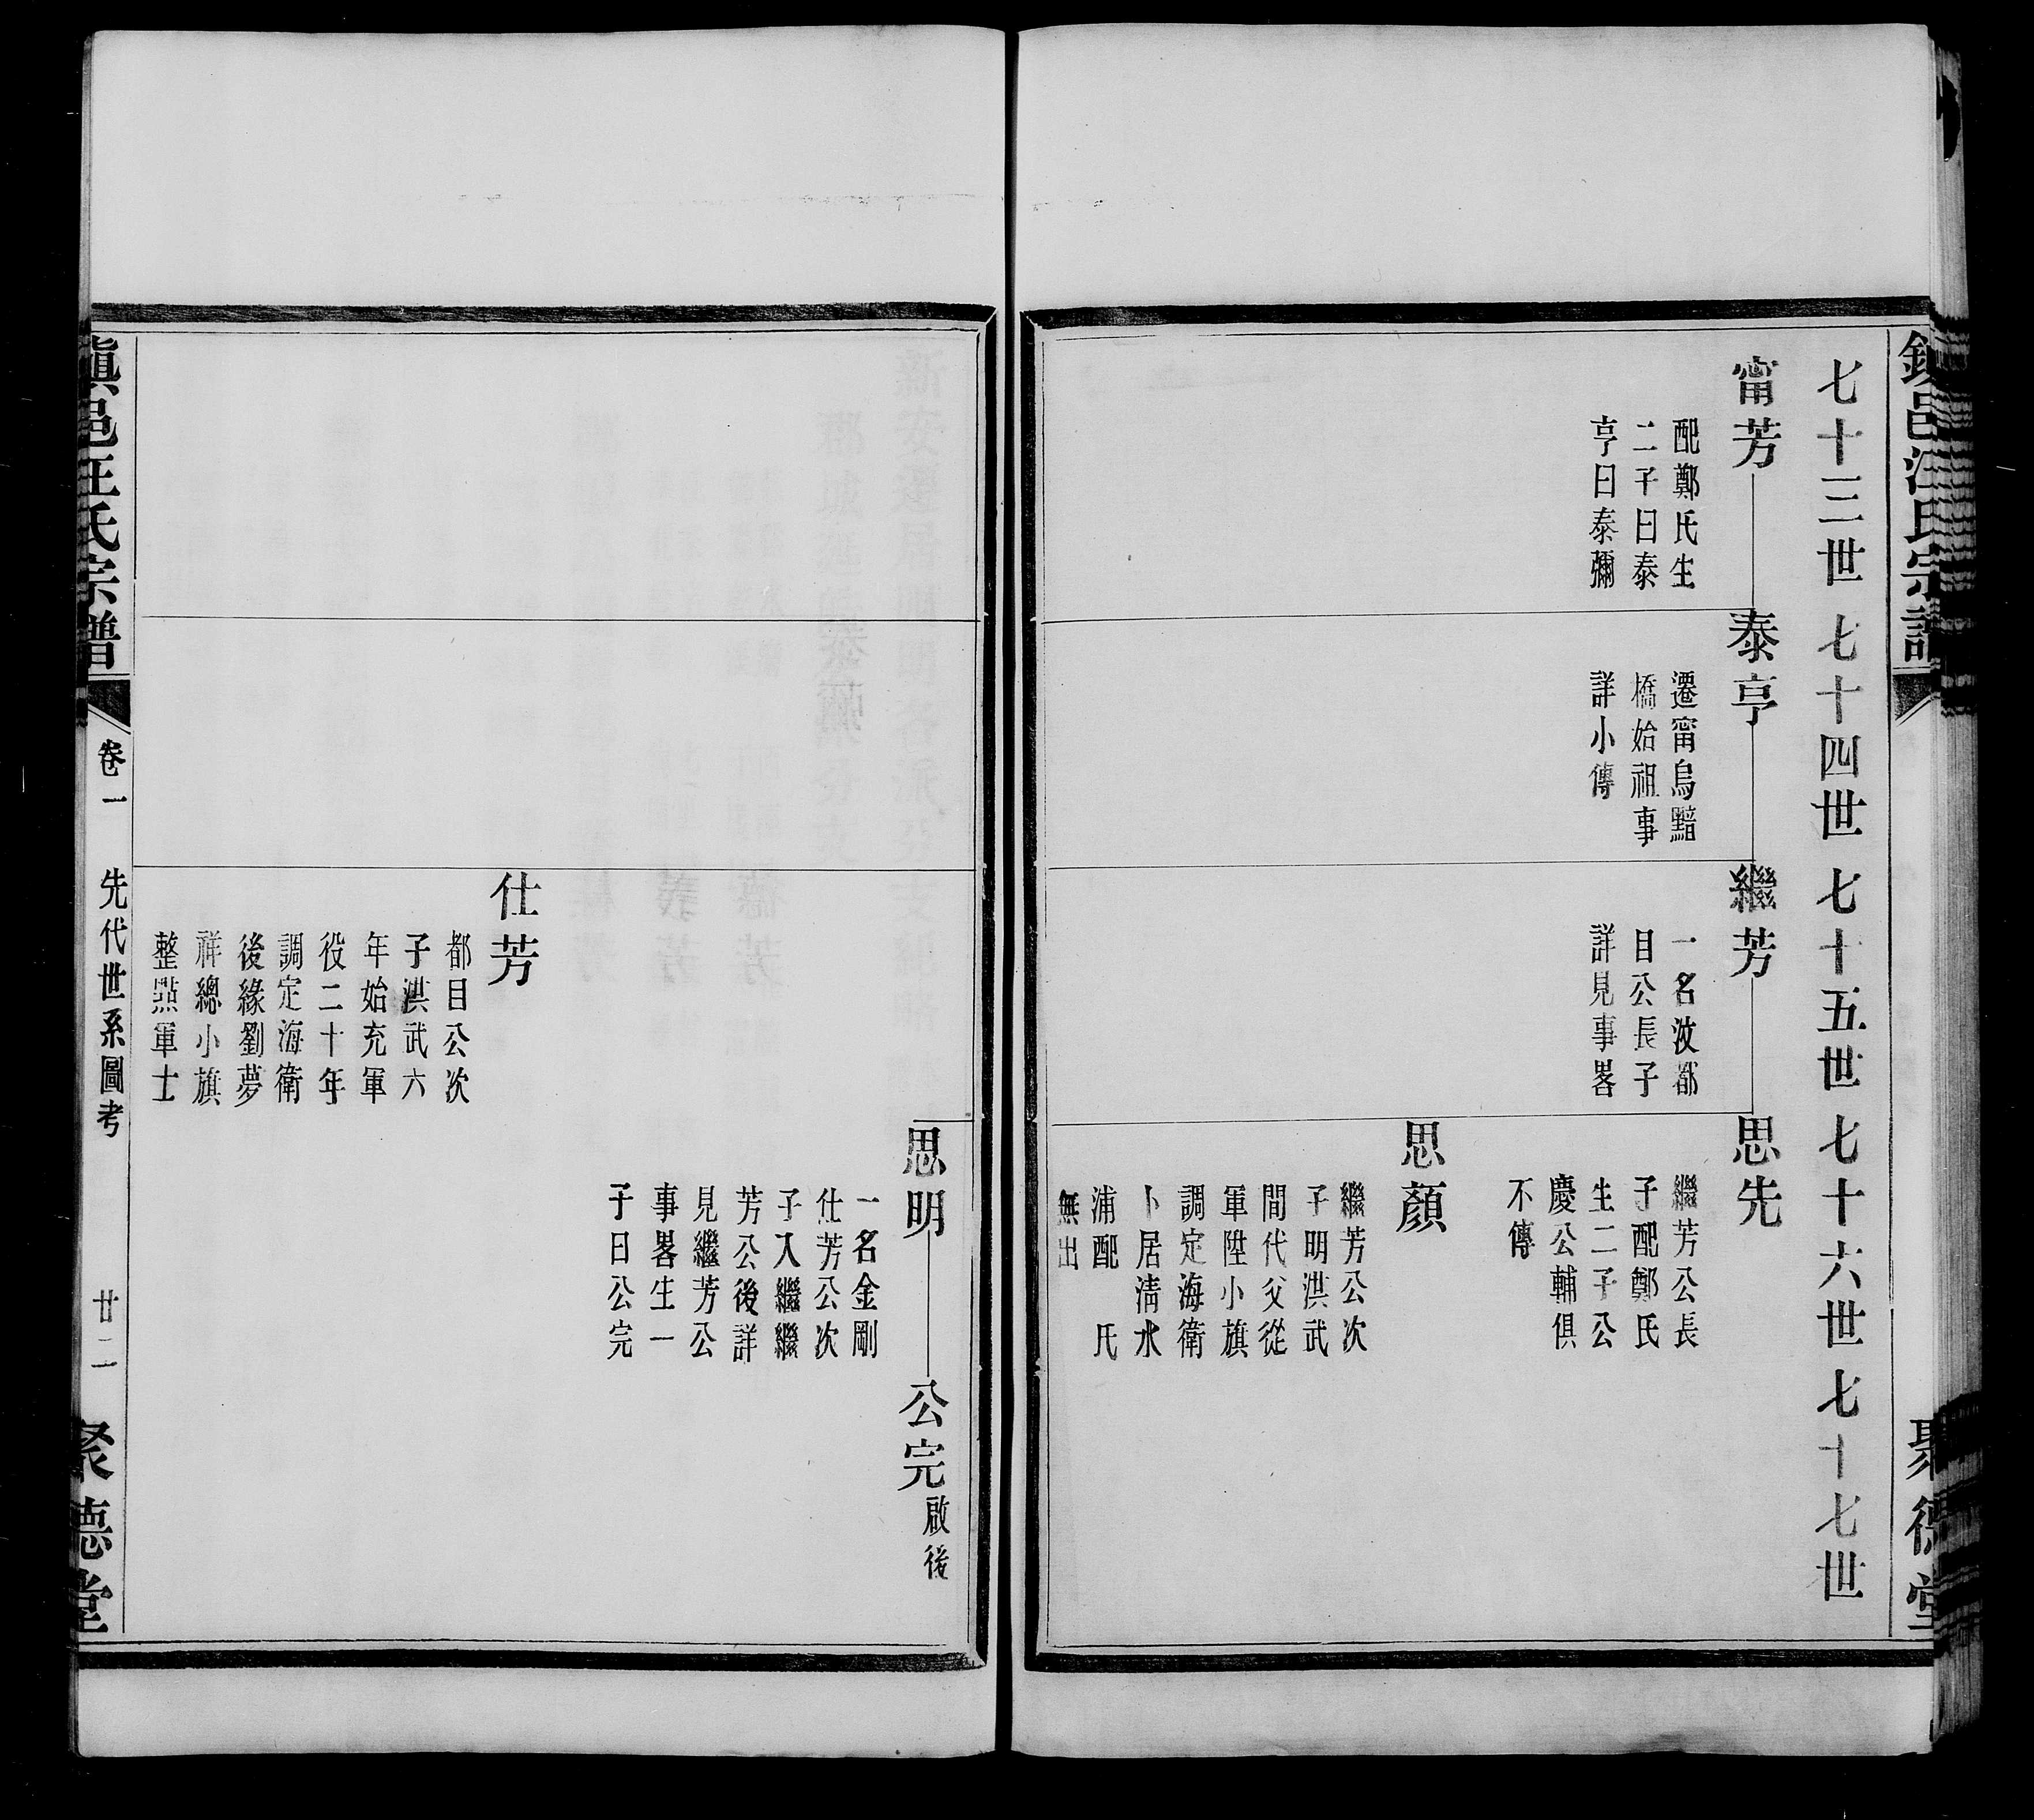 鎮邑汪氏宗譜
聚德堂
七十三世
七十四世
七十五世
七十六世
七十七世
甯芳
配鄭氏生
二子曰泰
亨曰泰彌
泰亨
遷甯烏䵝
橋始祖事
詳小傳
繼芳
一名汝都
目公長子
詳見事畧
思先
繼芳公長
子配鄭氏
生二子公
慶公輔俱
不傳
思顏
繼芳公次
子明洪武
間代父從
軍陞小旗
調定海衛
卜居清水
浦配　氏
無出
思明
一名金剛
仕芳公次
子入繼繼
芳公後詳
見繼芳公
事畧生一
子曰公完
公完
啟後
仕芳
都目公次
子洪武六
年始充軍
役二十年
調定海衛
後緣劉夢
祥總小旗
整點軍士
鎮邑汪氏宗譜
卷一
先代世系圖考
廿二
聚德堂